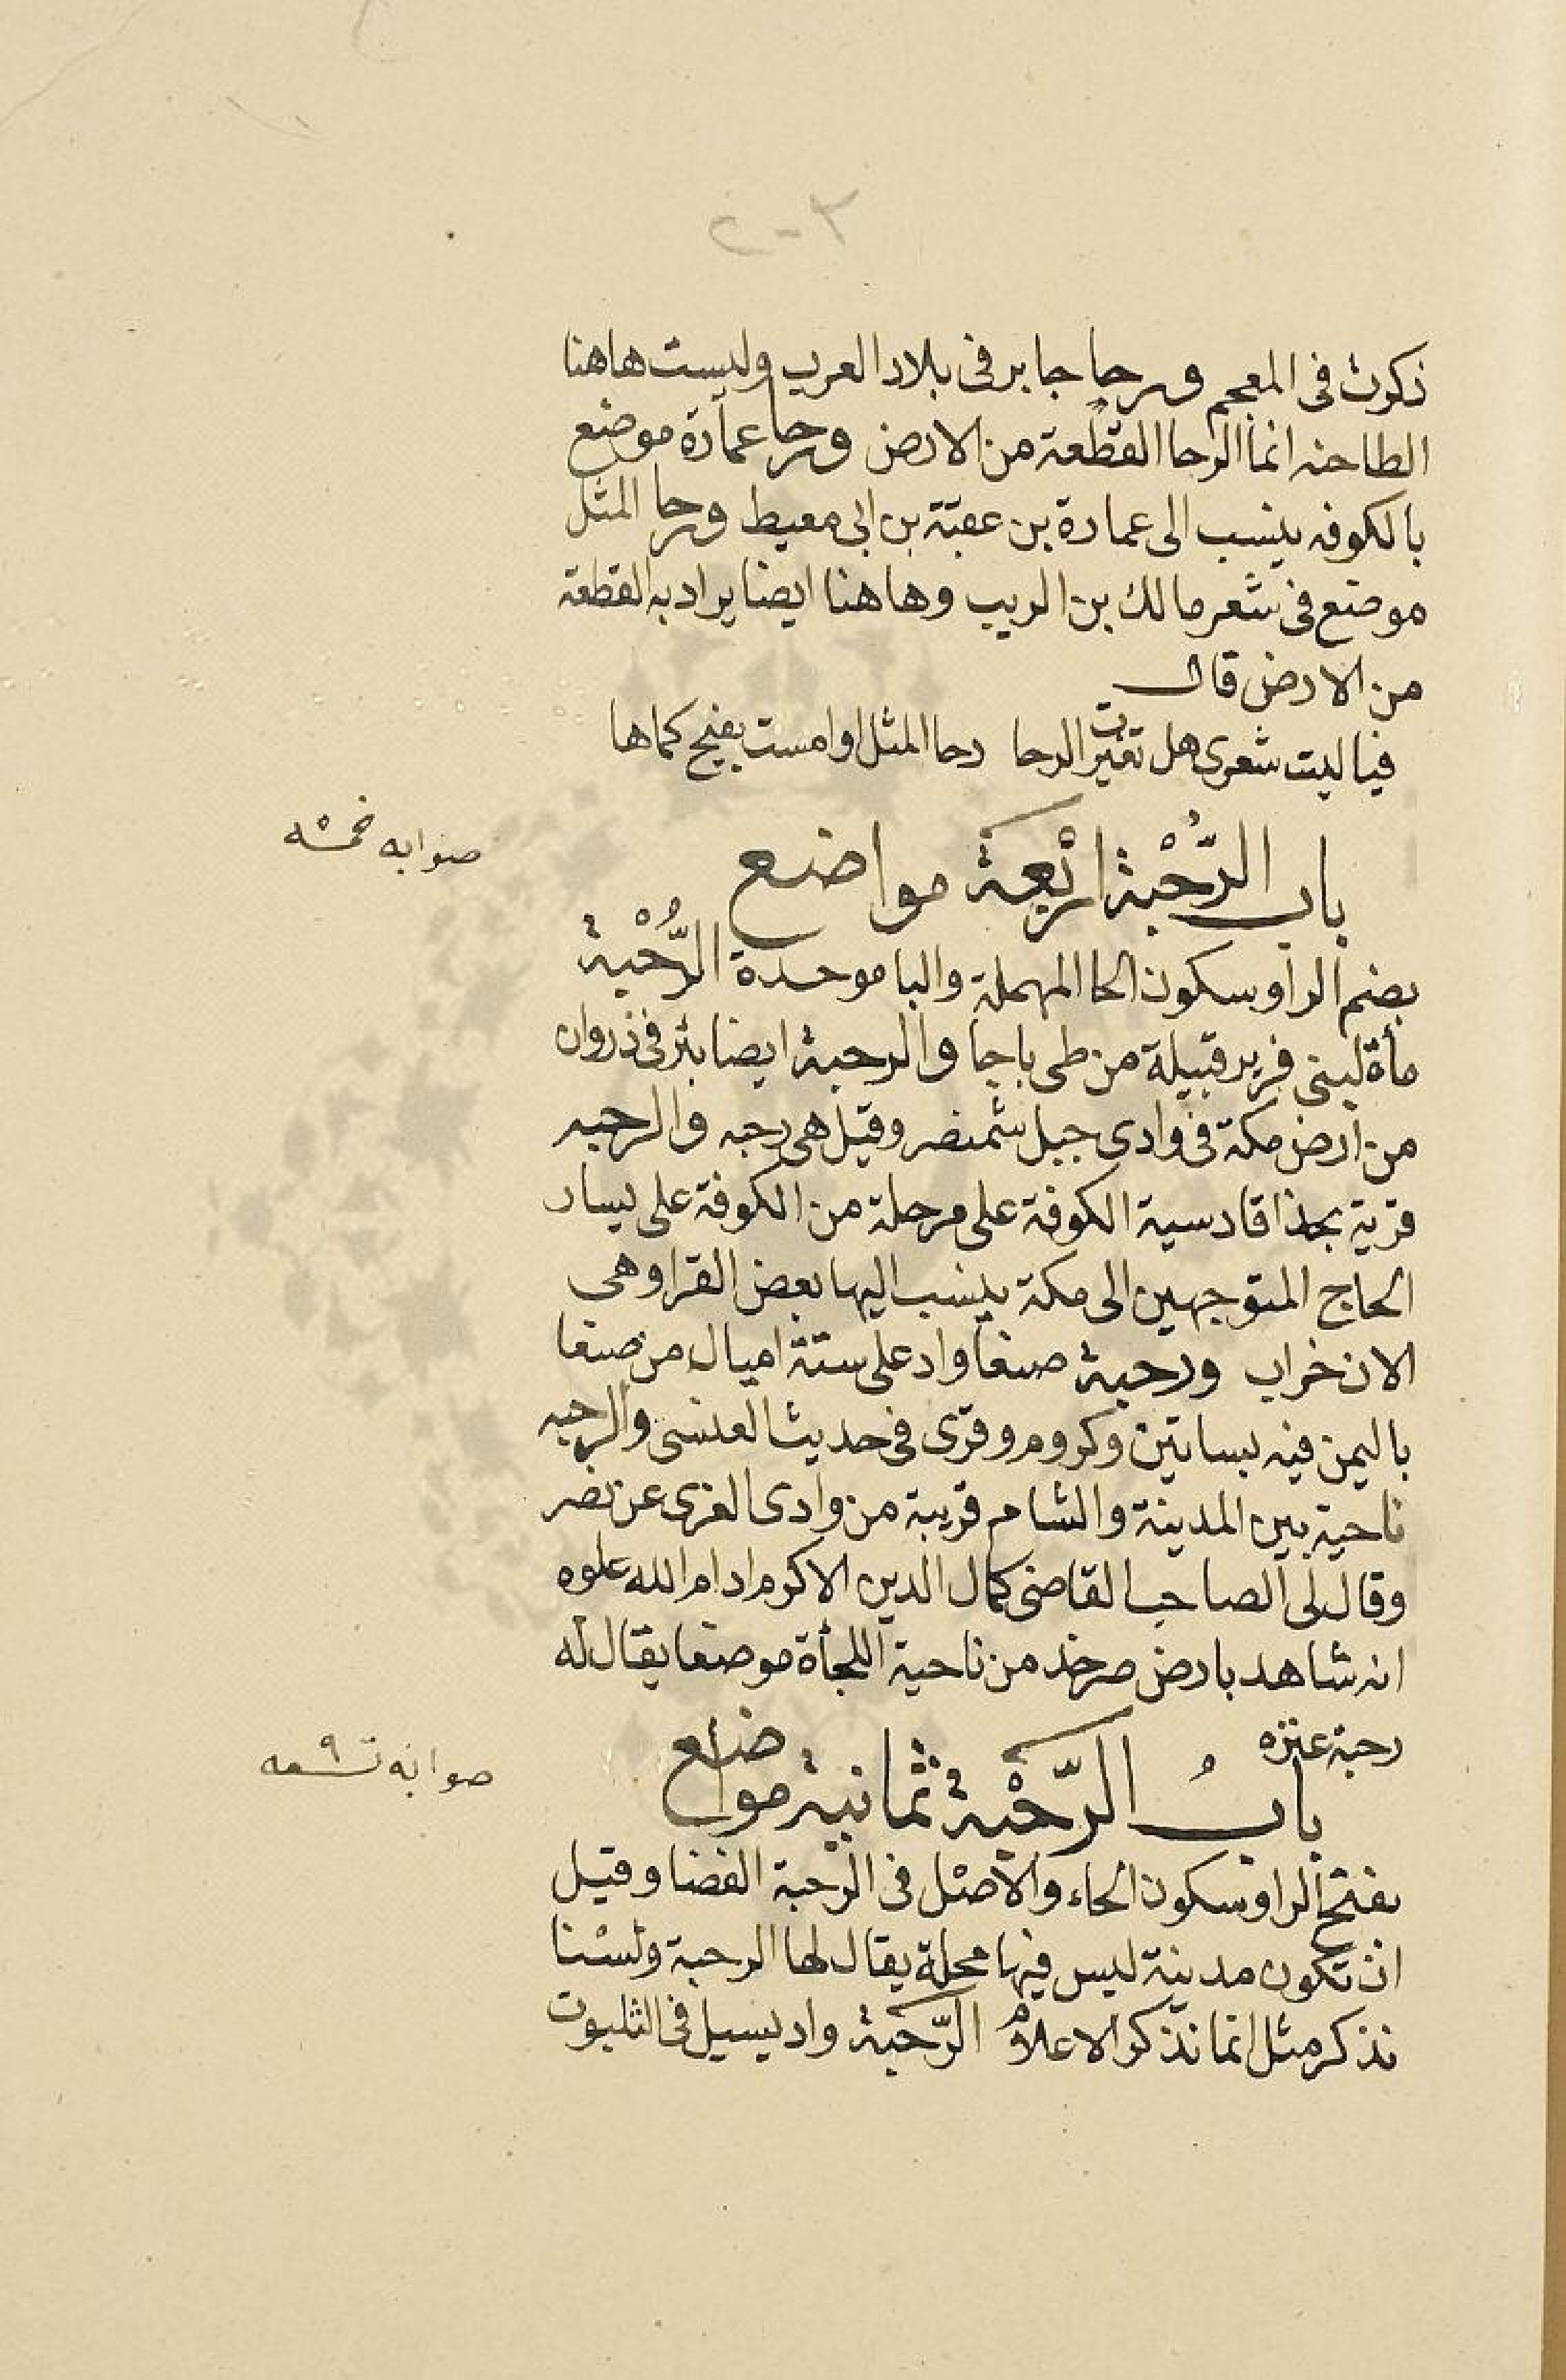 ذكرت فى المعجم ورحا جابر فى بلاد العرب وليست هاهنا
الطاحنه انما الرحا القطعة من الارض ورحا عمارة موضع
بالكوفه ينسب الى عمارة بن عقبة بن ابى معيط ورحا المثل
موضع فى شعر مالك بن الريب وهاهنا ايضا يراد به القطعة
من الارض قال
فيا ليت شعرى هل تغيرت الرحا رحا المثل او امست بفيح كماها
باب الرُّحْبة اربعة مواضع
صوابه خمسه
بضم الرا وسكون الحا المهملة والبا موحدة الرُّحْبة
مأة لبنى فرير قبيلة من طى باجا والرحبة ايضا بئر فى ذروان
من ارض مكة فى وادى جبل شمنصر وقيل هى رحبه والرحبه
قرية بحذا قادسية الكوفة على مرحلة من الكوفة على يسار
الحاج المتوجهين الى مكة ينسب اليها بعض القرا وهى
الان خراب ورحبة صنعا واد على ستة اميال من صنعا
باليمن فيه بساتين وكروم وقرى فى حديث العنسى والرحبه
ناحية بين المدينة والشام قريبة من وادى القرى عن نصر
وقال لى الصاحب القاضى كمال الدين الاكرم ادام الله علوه
انه شاهد بارض صرخد من ناحية اللجأة موضعا يقال له
رحبة عنزه
بابُ الرَّحْبة ثمانية مواضع
صوابه تسعه
بفتح الرا وسكون الحاء والاصل فى الرحبة الفضا وقيل
ان تكون مدينة ليس فيها محلة يقال لها الرحبة ولسنا
نذكر مثل انما نذكر الاعلام الرَّحَبة واد يسيل فى الثلبوت